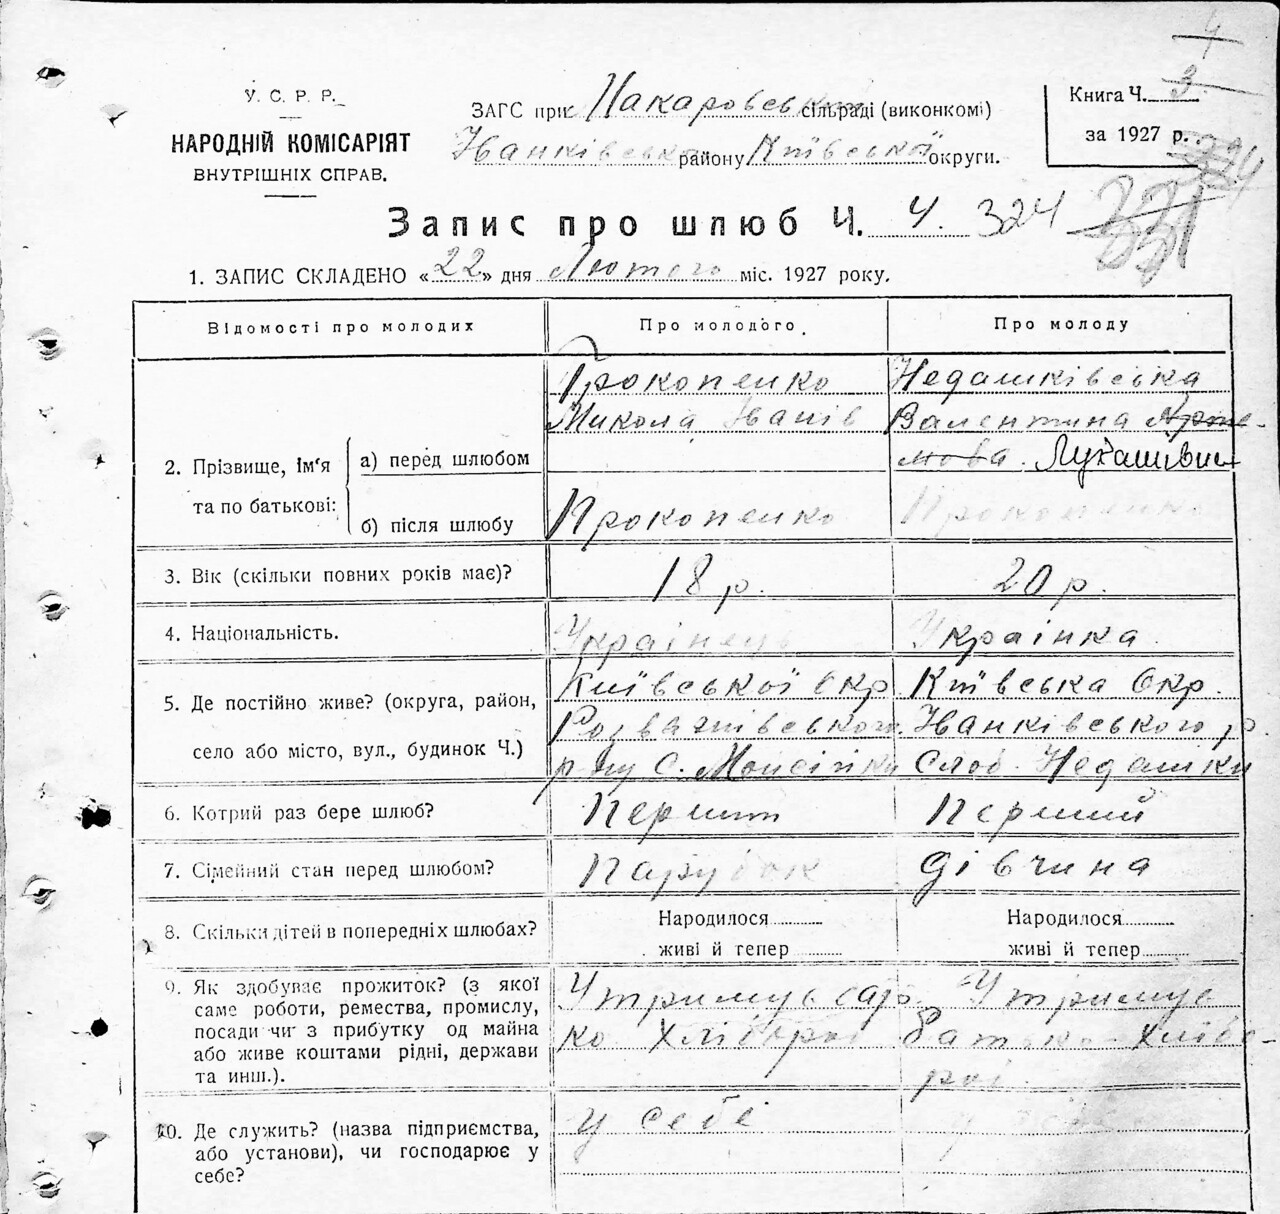 4
3
У. С. Р. Р.
НАРОДНІЙ КОМІСАРІЯТ
ВНУТРІШНІХ СПРАВ.
ЗАГС при Макаровській сільраді (виконкомі)
Іванківського району Київської округи.
Книга Ч. 3.
за 1927 р.
324
331
Запис про шлюб Ч. 4. 324
1. ЗАПИС СКЛАДЕНО «22» дня Лютого міс. 1927 року.
Відомості про молодих Про молодого. Про молоду
2. Прізвище, ім'я та по батькові:
а) перед шлюбом
Прокопенко Микола Іванів
Недашківська Валентина Арте-мова. Лукашивна
б) після шлюбу Прокопенко Прокопенко
3. Вік (скільки повних років має)? 18 р. 20 р.
4. Національність. Українець Українка
5. Де постійно живе? (округа, район,
село або місто, вул., будинок Ч.)
Київської Окр
Розважівського
р-ну С. Мойсійки
Київська Окр.
Іванківського р.
Слоб. Недашки
6. Котрий раз бере шлюб? Перший Перший
7. Сімейний стан перед шлюбом? Парубок дівчина
8. Скільки дітей в попередніх шлюбах?
Народилося
живі й тепер
Народилося
живі й тепер
9. Як здобуває прожиток? (з якої
саме роботи, ремества, промислу,
посади чи з прибутку од майна
або живе коштами рідні, держави
та инш.).
Утримує
ко Хлібороб
Утримує
Батько - Хлібо-
роб
10. Де служить? (назва підприємства,
або установи), чи господарює у
себе?
у себе